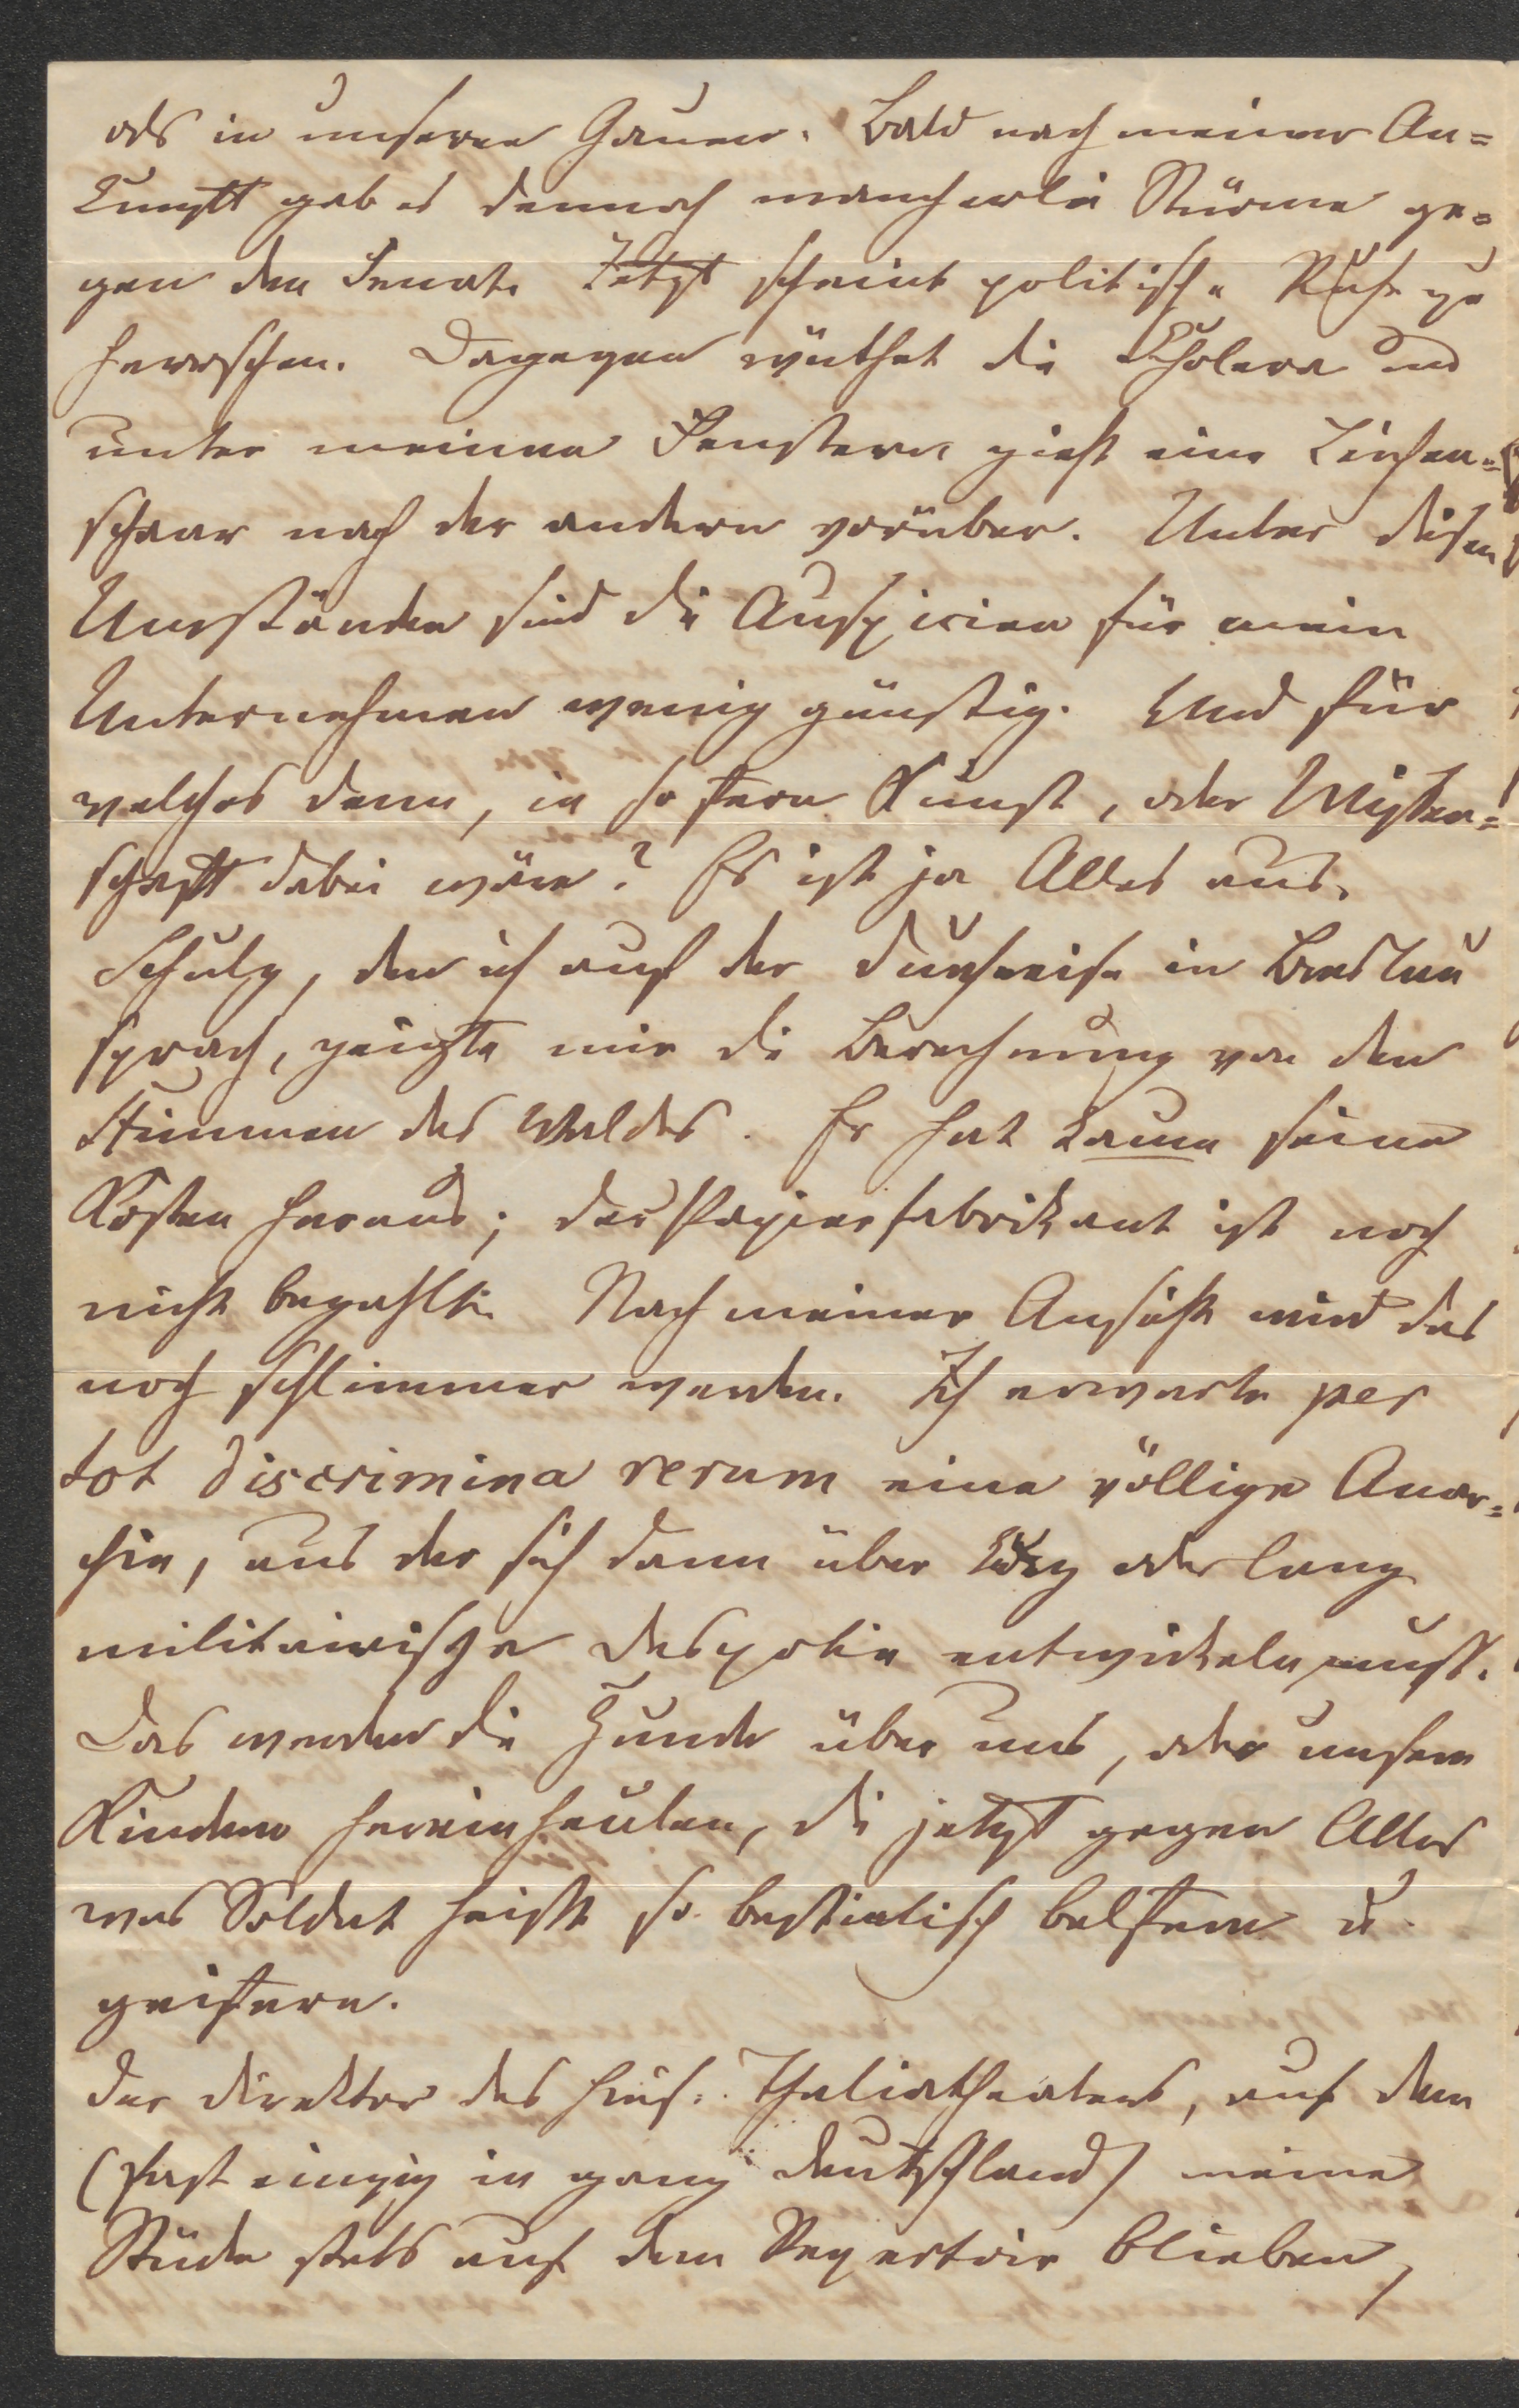 als in unseren Gauen. Bald nach meiner An=
kunftt gab es dennoch mancherlei Stürme ge=
gen den Senat. Jetzt scheint politische Ruhe zu
herrschen. Dagegen wüthet die Cholera und
unter meinen Fenstern zieht eine Leichen=
schaar nach der andern vorüber. Unter diesen
Umständen sind die Auspicien für mein
Unternehmen wenig günstig. Und für
welches denn, in so fern Kunst, oder Wissen=
schaftt dabei wäre? Es ist ja Alles aus.
Schulz, den ich auf der Durchreise in Breslau
sprach, zeigte mir die Berechnung von den
Stimmen des Waldes. Er hat kaum seine
Kosten heraus; der Papierfabrikant ist noch
nicht bezahlt. Nach meiner Ansicht wird das
noch schlimmer werden. Ich erwarte per
tot discrimina rerum eine völlige Anar=
chie, aus der sich dann über kurz oder lang
militairische Despotie entwickeln muß.
Das werden die Hunde über uns, oder unsern
Kindern hereinheulen, die jetzt gegen Alles
was Soldat heißt so bestialisch belfern u.
geifern.
Der Direktor des hies. Thaliatheaters, auf dem
(fast einzig in ganz Deutschland) meine
Stücke stets auf dem Repertoir blieben,